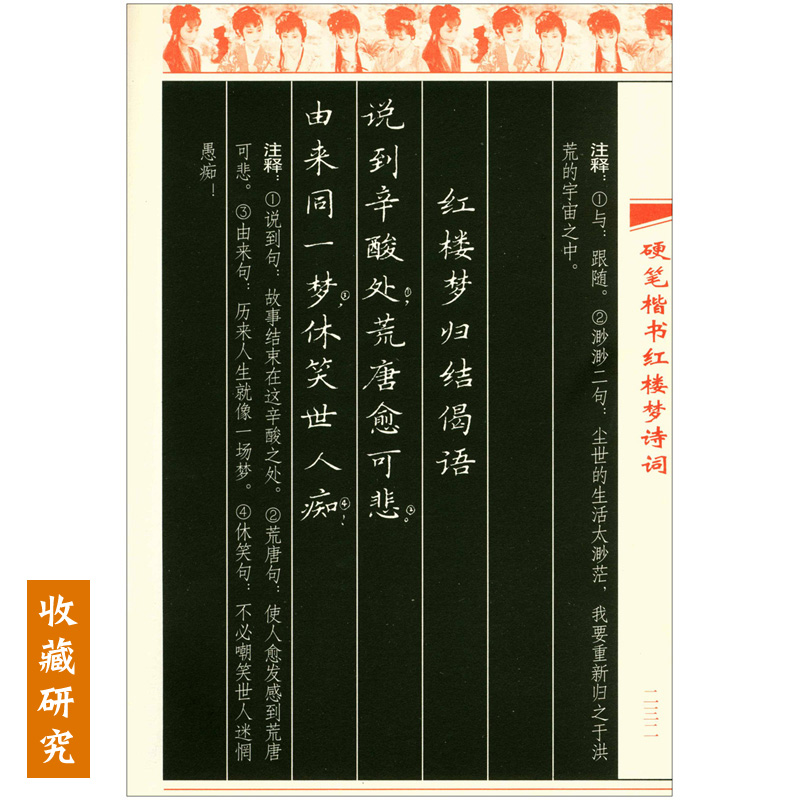 硬笔楷书红楼梦诗词
二三二
注释：①与：跟随。②渺渺二句：尘世的生活太渺茫，我要重新归之于洪
荒的宇宙之中。
红楼梦归结偈语
说到辛酸处①，荒唐愈可悲③。
由来同一梦②，休笑世人痴④！
注释：①说到句：故事结束在这辛酸之处。②荒唐句：使人愈发感到荒唐
可悲。③由来句：历来人生就像一场梦。④休笑句：不必嘲笑世人迷惘
愚痴！
收藏研究